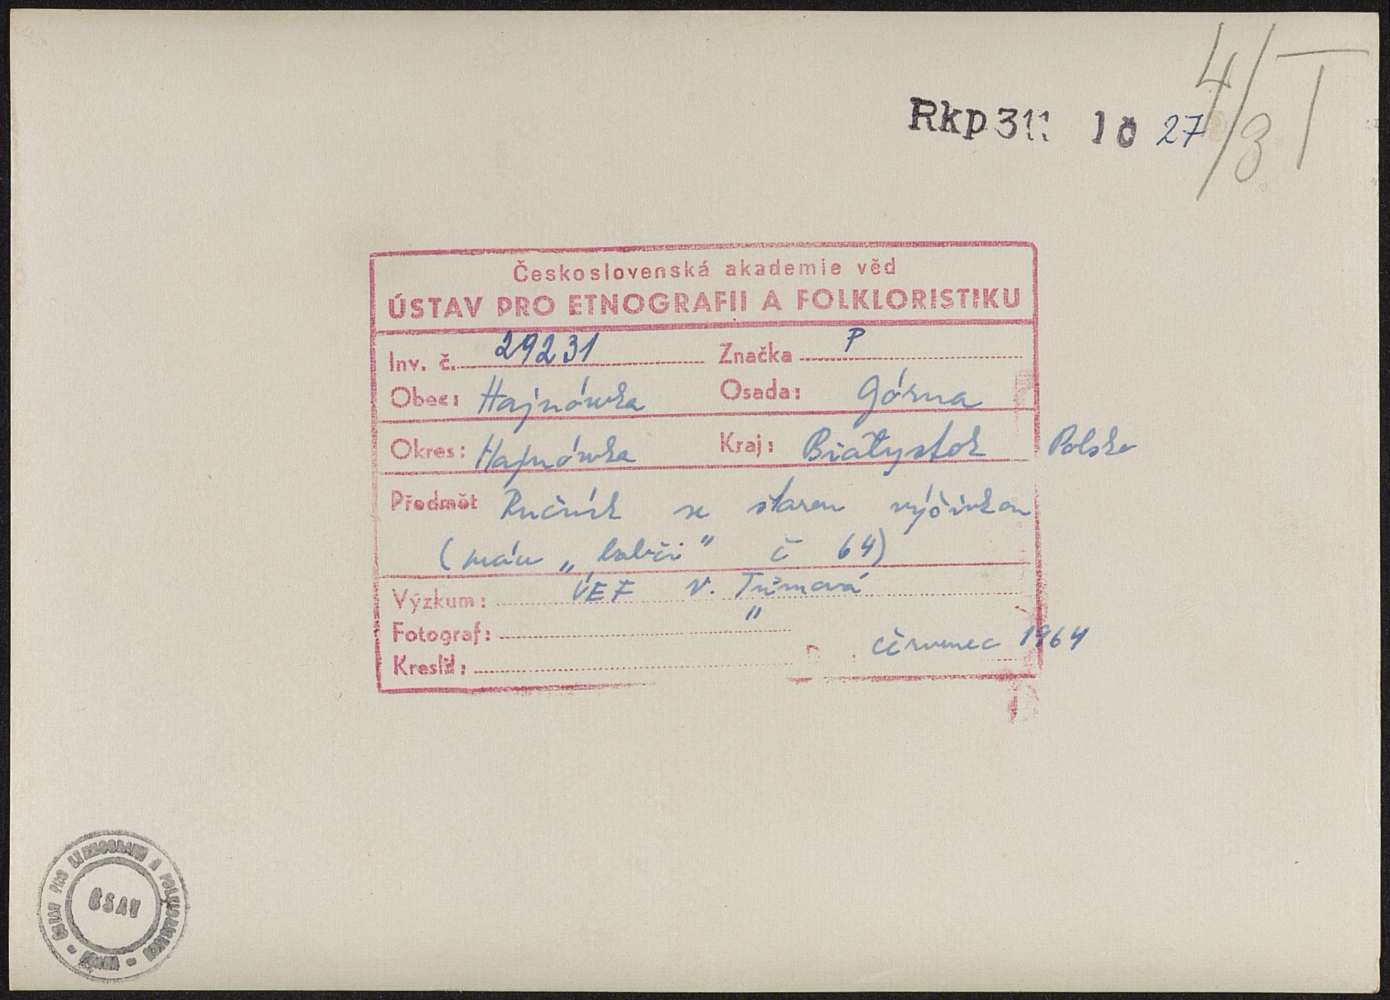 4/3 I
Rkp 311 10 27
Československá akademie věd
ÚSTAV PRO ETNOGRAFII A FOLKLORISTIKU
Inv. č. 29231 Značka P
Obec: Hajnówka Osada: Górna
Okres: Hajnówka Kraj: Białystok Polsko
Předmět Ručník se starou výšivkou
( „ " č 64)
Výzkum: ÚEF V. Tůmová
Fotograf: "
Kreslil: červenec 1964
ÚSTAV PRO ETNOGRAFII A FOLKLORISTIKU
ČSAV